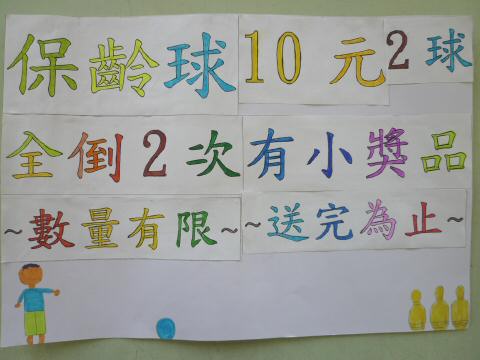 保齡球10元2球
全倒2次有小獎品
~數量有限~ ~送完為止~